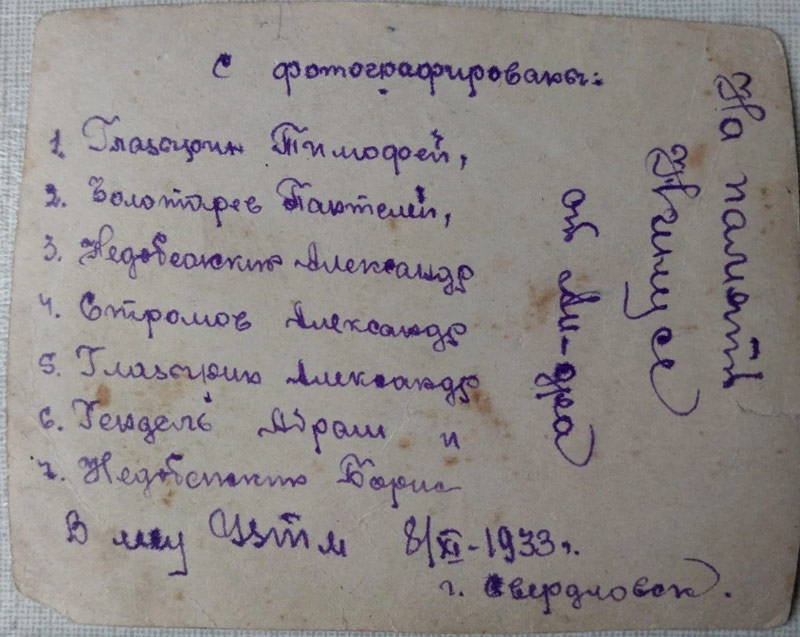 С фотографированы:
1. Глазырин Тимофей,
2. Золотарев Пантелей,
3. Недобежкин Александр
4. Стромов Александр
5. Глазырин Александр
6. Гендель Абрам и
7. Недобежкин Борис
В
8/XI-1933 г.
г. Свердловск.
На память
Нинусе
от Ал-дра